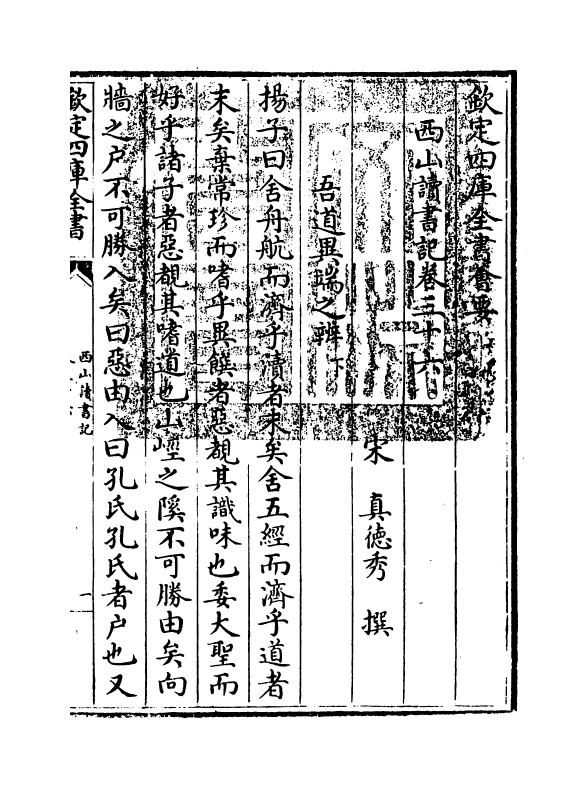 欽定四庫全書薈要
西山讀書記卷三十六
宋 真德秀 撰
吾道異端之辨下
揚子曰舍舟航而濟乎瀆者末矣舍五經而濟乎道者
末矣棄常珍而嗜乎異饌者惡覩其識味也委大聖而
好乎諸子者惡覩其嗜道也山𡼏之蹊不可勝由矣向
牆之户不可勝入矣曰惡由入曰孔氏孔氏者户也又
欽定四庫全書
西山讀書記
一